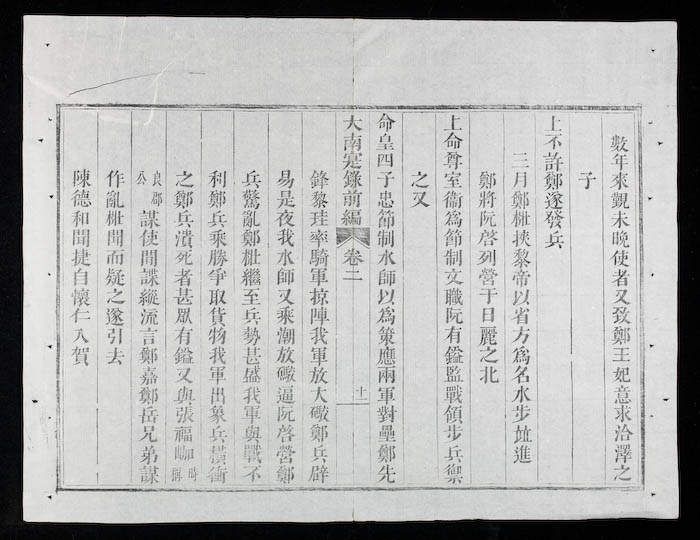 數年來覲未晚使者又致鄭王妃意求洽澤之
子
上不許鄭遂發兵
三月鄭枇挾黎帝以省方爲名水步並進
鄭將阮啓列營于日麗之北
上命尊室衞爲節制文職阮有鎰監戰領步兵禦
之又
命皇四子忠節制水師以爲策應兩軍對壘鄭先
大南寔錄前編 卷二 十一
鋒黎珪率騎軍掠陣我軍放大礮鄭兵辟
易是夜我水師又乘潮放礮逼阮啓營鄭
兵驚亂鄭枇繼至兵勢甚盛我軍與戰不
利鄭兵乘勝爭取貨物我軍出象兵橫衝
之鄭兵潰死者甚眾有鎰又與張福㕸時稱
良郡公謀使間諜縱流言鄭嘉鄭岳兄弟謀
作亂枇聞而疑之遂引去
陳德和聞捷自懷仁入賀